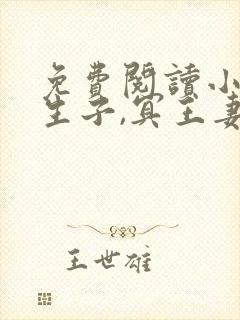 免費閱讀小
生子,冥王妻
王世雄